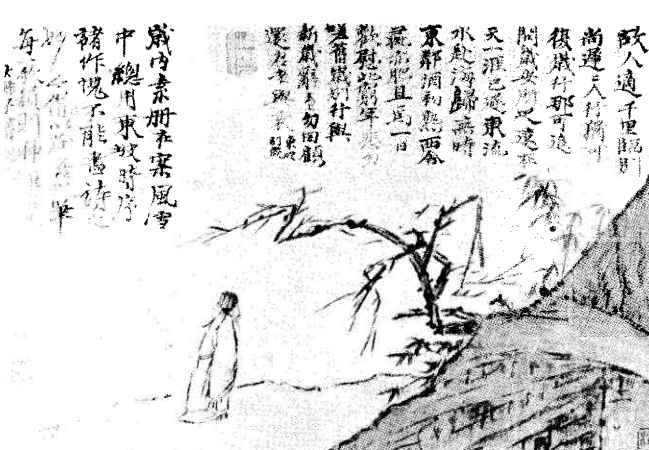 故人適千里臨別
尚遲二人行猶可
復歲行那可追
問歲安所之遠在
天一涯已逐東流
水赴海歸無時
東鄰酒初熟西舍
彘亦肥且爲一日
歡慰此窮年悲勿
嗟舊歲別行與
新歲辭去勿回顧
還君老與衰 東坡別歲
歲内素冊在案風雪
中總用東坡時序
諸作愧不能盡詩之
妙 筆
每